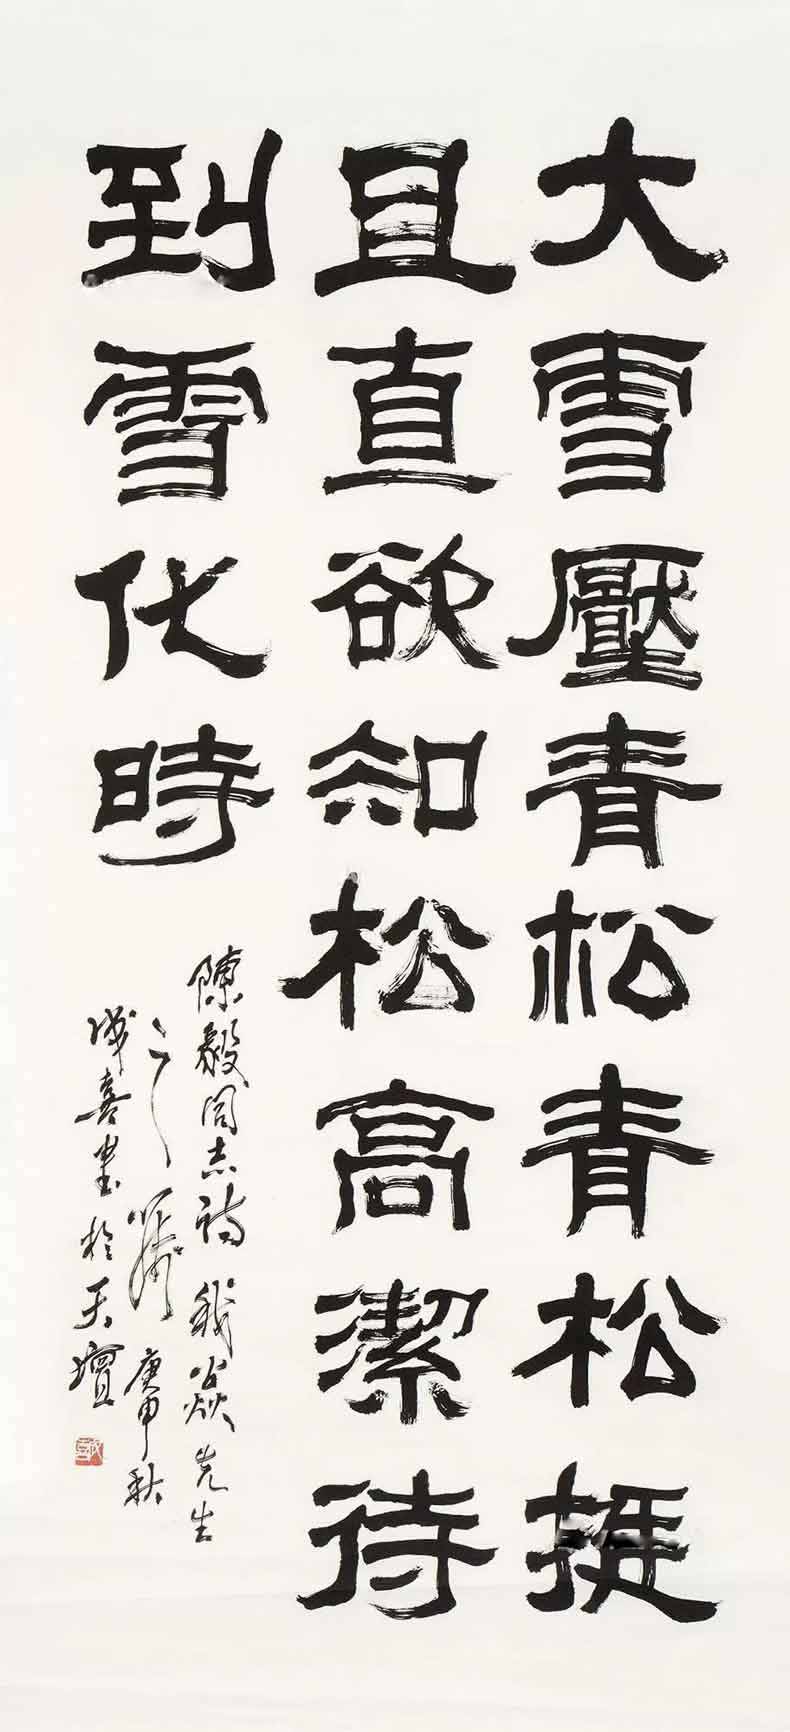 大雪壓青松青松挺
且直欲知松高潔待
到雪化時
陳毅同志詩 先生
之 庚申秋
成喜書於天